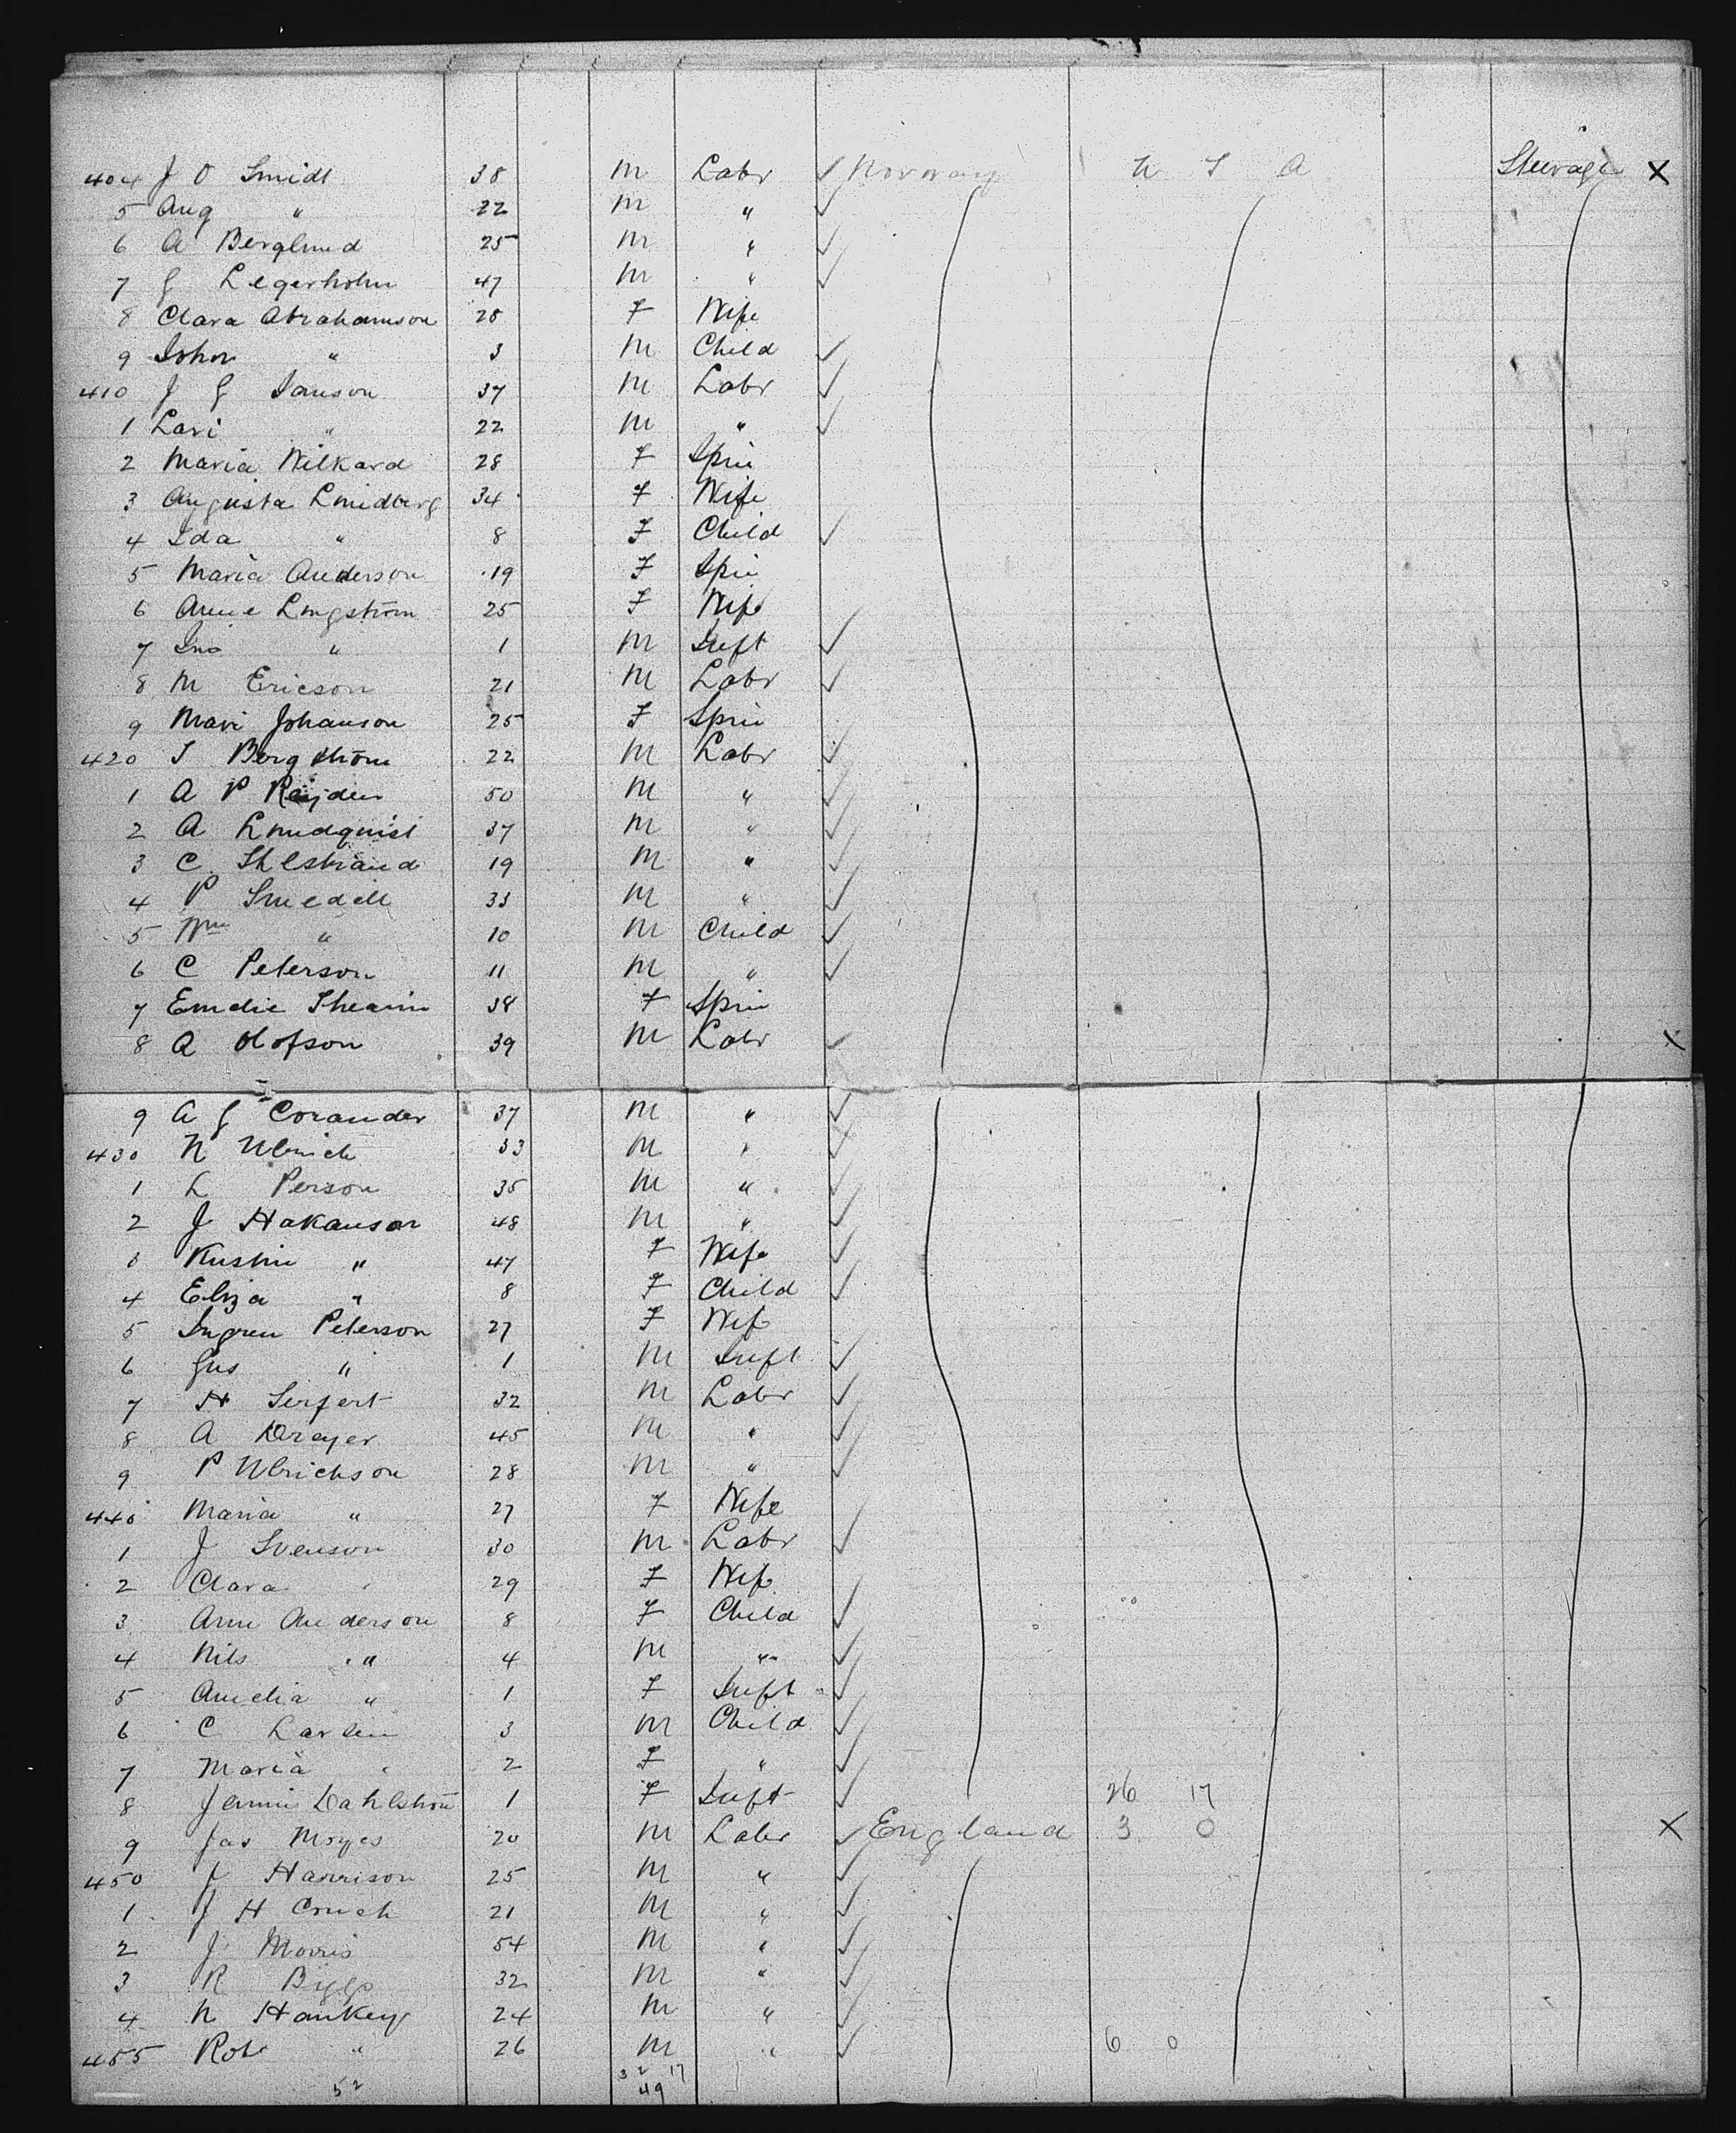 404 J O Smidt 38 M Labr ✓ Norway U S A Steerage X
5 Aug " 22 M " ✓
6 A Berglund 25 M " ✓
7 G Legerholm 47 M " ✓
8 Clara Abrahamson 28 F Wife
9 John " 3 M Child ✓
410 J G Janson 37 M Labr ✓
1 Lari " 22 M " ✓
2 Maria Wilkard 28 F Spin
3 Augusta Lindberg 34 F Wife
4 Ida " 8 F Child ✓
5 Maria Anderson 19 F Spin
6 Anne Lingström 25 F Wife
7 Jno " 1 M Inft ✓
8 M Ericson 21 M Labr ✓
9 Mari Johanson 25 F Spin
420 J Bergström 22 M Labr ✓
1 A P 50 M " ✓
2 A Lundquist 37 M " ✓
3 C 19 M " ✓
4 P Smedell 33 M " ✓
5 Wm " 10 M Child ✓
6 C Peterson 11 M " ✓
7 Emelie 38 F Spin
8 A Olofson 39 M Labr ✓ X
9 A G Corander 37 M " ✓
430 N Ulrrich 33 M " ✓
1 L Person 35 M " ✓
2 J Hakanson 48 M " ✓
3 47 F Wife ✓
4 Eliza " 8 F Child ✓
5 Ingren Peterson 27 F Wife
6 Gus " 1 M Inft ✓
7 H Seifert 32 M Labr ✓
8 A Dreyer 45 M " ✓
9 P Ulrichson 28 M " ✓
440 Maria " 27 F Wife
1 J Svenson 30 M Labr ✓
2 Clara " 29 F Wife
3 Ann Anderson 8 F Child ✓
4 Nils " 4 M " ✓
5 Amelia " 1 F Inft ✓
6 C Larsen 3 M Child ✓
7 Maria " 2 F " ✓
8 Jennie Dahlström 1 F Inft ✓ 26 17
9 Jas Moyes 20 M Labr ✓ England 3 0 X
450 J Harrison 25 M " ✓
1 J H Crouch 21 M " ✓
2 J Morris 54 M " ✓
3 R Biggs 32 M " ✓
4 N Hankey 24 M " ✓
455 Robt " 26 M " ✓ 6 0
52 32 17
49